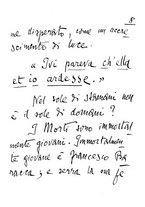 8
ne disperato, come un accre
scimento di luce.
« Ivi pareva ch'ella
et io ardesse. »
Nel sole di
è il sole di domani?
I Morti sono immortal
mente giovani. Immortalmen
te giovane è Francesco Ba
racca; e serra la sua fe